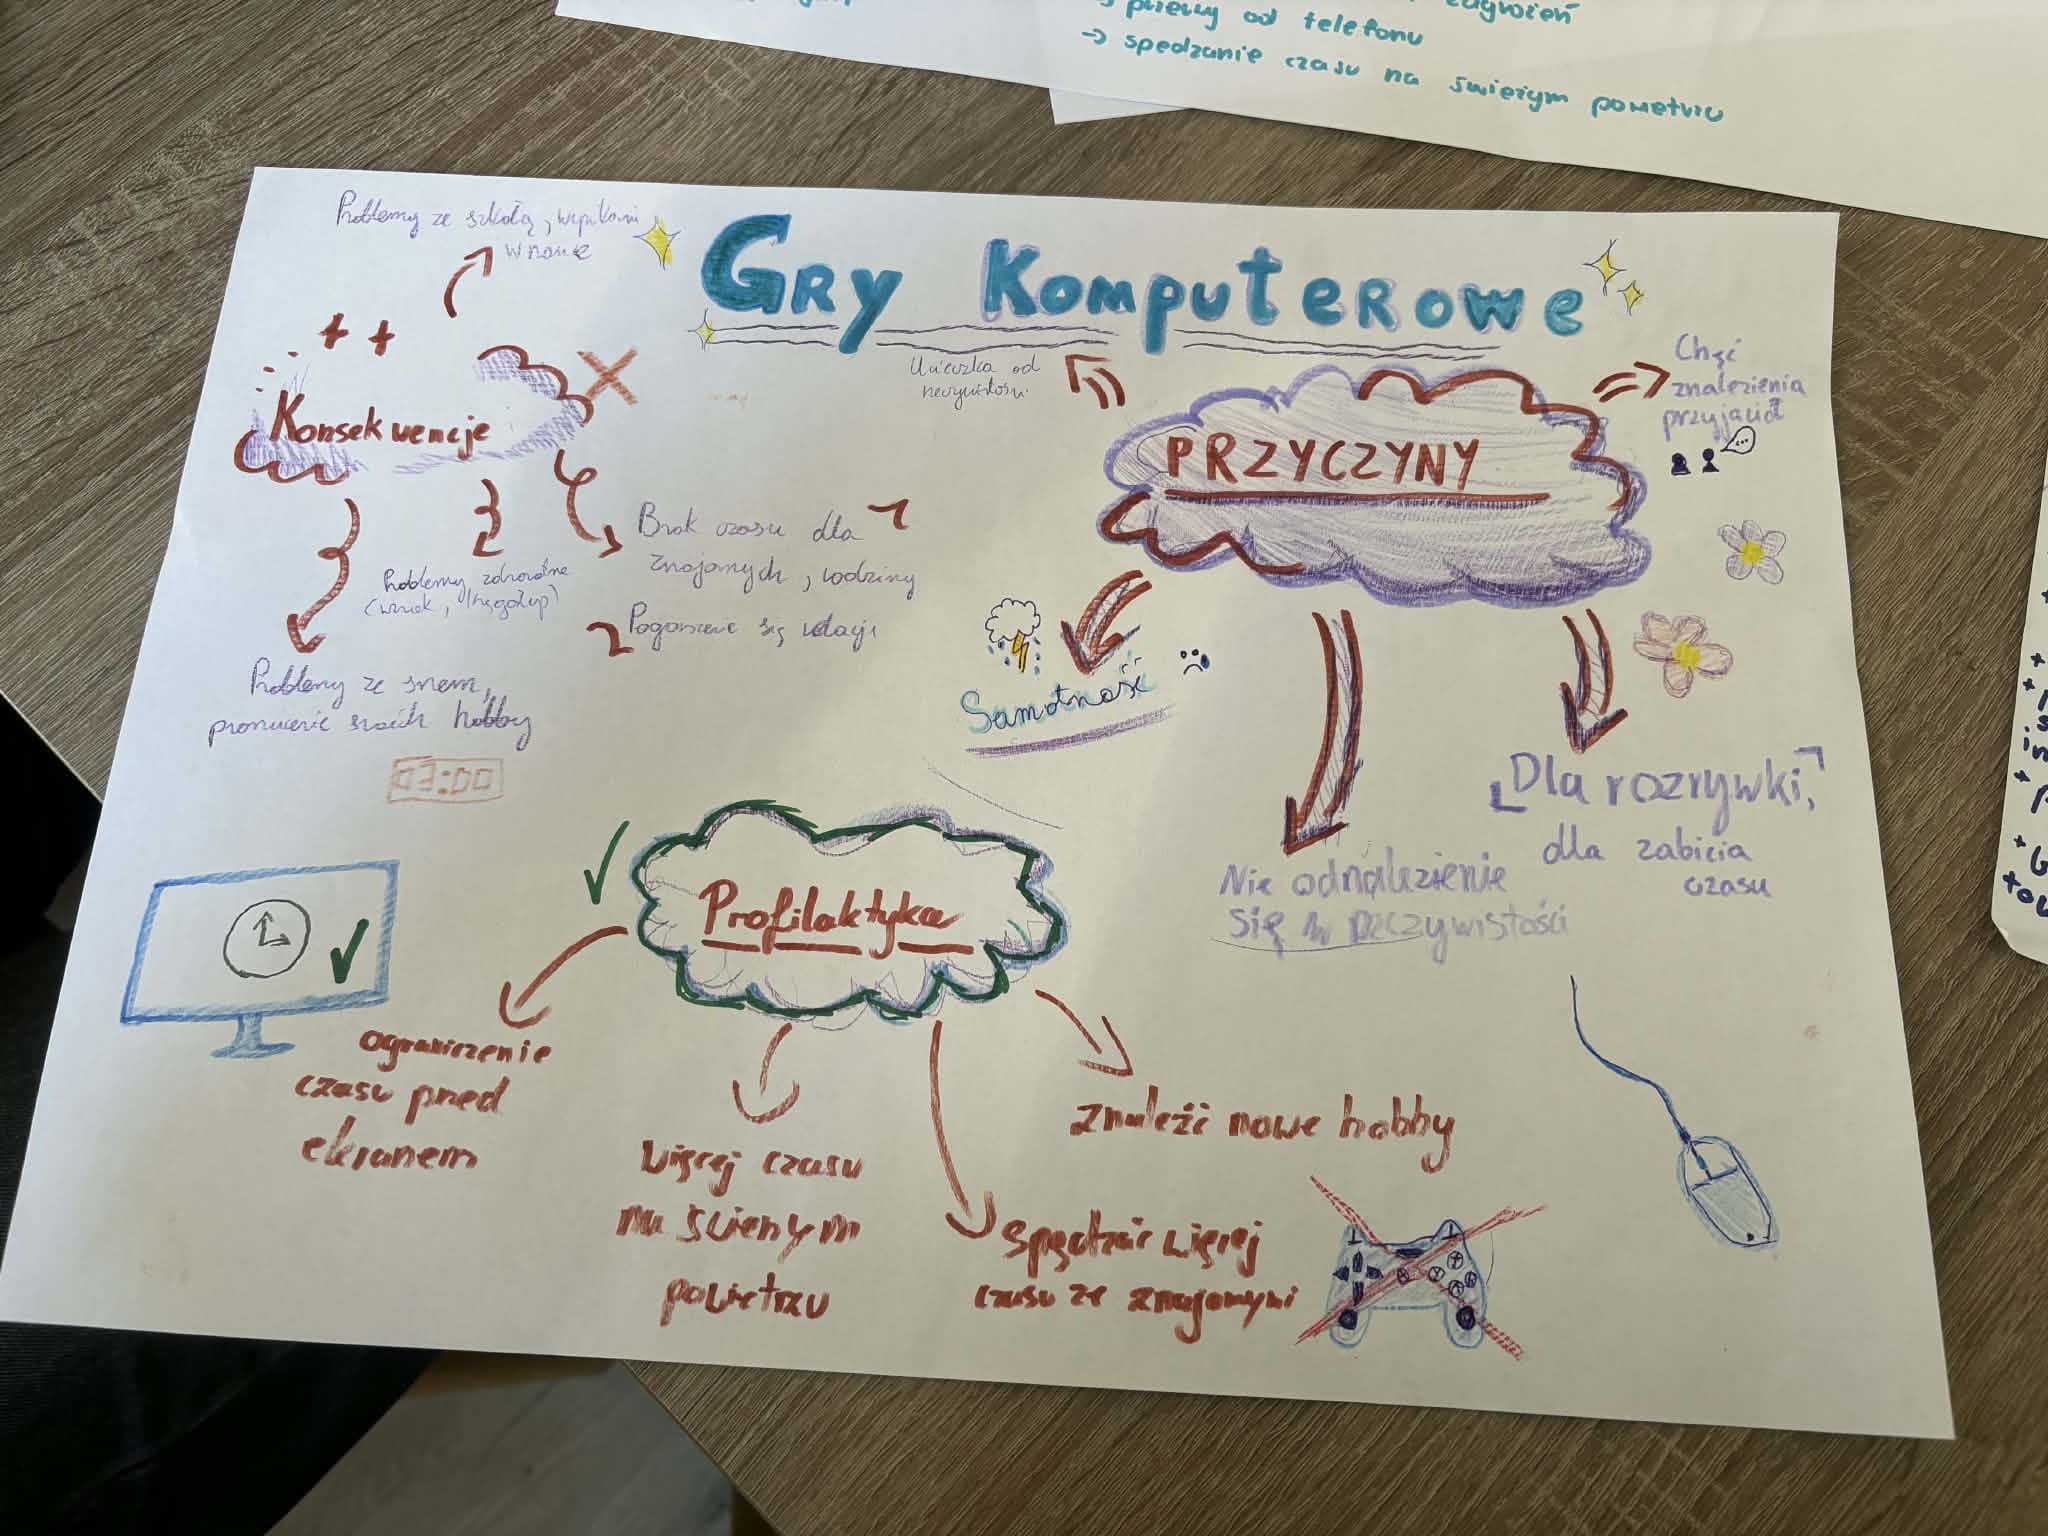 zagrożeń
przerwy od telefonu
→ spędzanie czasu na świeżym powietrzu
Gry Komputerowe
Problemy ze szkołą, wynikami
w nauce
Konsekwencje
Brak czasu dla
znajomych, rodziny
Pogorszenie się relacji
Problemy zdrowotne
(wzrok, kręgosłup)
Problemy ze snem,
porzucenie swoich hobby
03:00
PRZYCZYNY
Ucieczka od
rzeczywistości
Chęć
znalezienia
przyjaciół
Samotność
Nie odnalezienie
się w rzeczywistości
Dla rozrywki,
dla zabicia
czasu
Profilaktyka
ograniczenie
czasu przed
ekranem
Więcej czasu
na świeżym
powietrzu
Spędzać więcej
czasu ze znajomymi
znaleźć nowe hobby